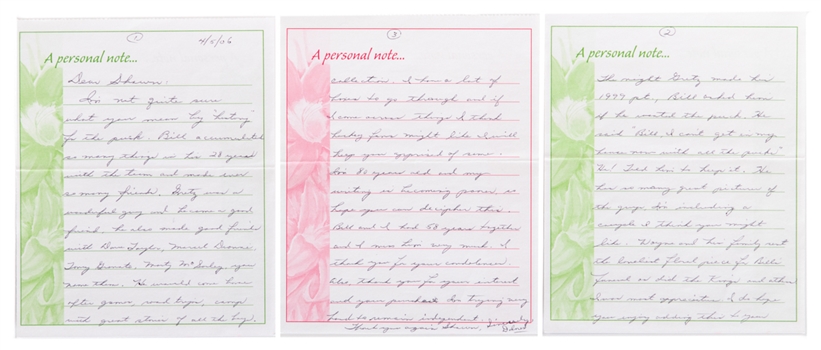 ① 4/5/06
A personal note...
Dear Shawn:
I'm not quite sure
what you mean by "history"
for the puck. Bill accumulated
so many things in his 28 years
with the team and made ever
so many friends. Gretz was a
wonderful guy and became a good
friend. he also made good friends
with Dave Taylor, Marcel Dionne,
Tony Granato, Marty McSorley, you
name them. He would come home
after games, road trips, camp
with great stories of all the boys.
③
A personal note...
collection. I have a lot of
boxes to go through and if
I come across things I think
hockey fans might like I will
keep you apprised of same.
I'm 81 years old and my
writing is becoming poorer, so
hope you can decipher this.
Bill and I had 58 years together
and I miss him very much. I
thank you for your condolences.
Also, thank you for your interest
and your purchase. I'm trying very
hard to remain independent.
Thank you again Shawn, Sincerely
②
A personal note...
The night Gretz made his
1999 pt., Bill asked him
if he wanted the puck. He
said "Bill, I can't get in my
house now with all the pucks"
Ha! Told him to keep it. He
has so many great pictures of
the guys too including a
couple I think you might
like. Wayne and his family sent
the loveliest floral piece for Bill's
funeral as did the Kings and others.
I was most appreciative. I do hope
you enjoy adding this to your